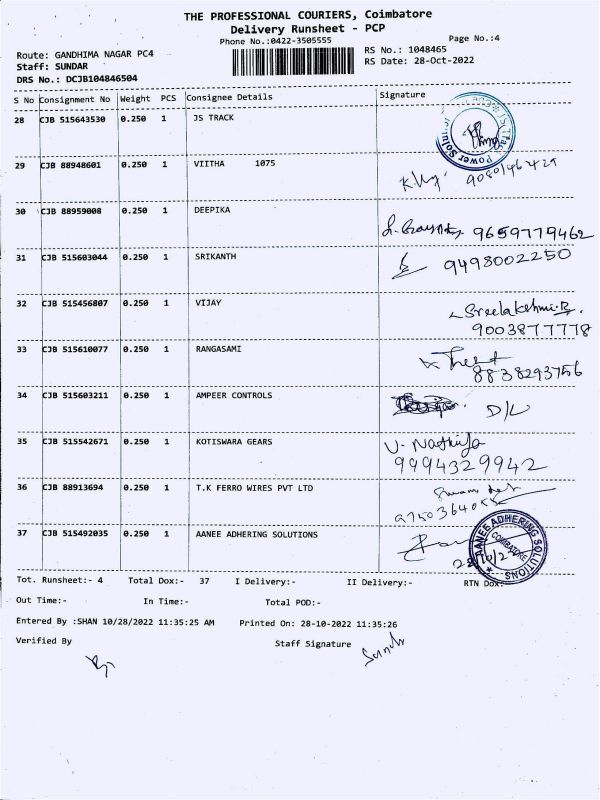 THE PROFESSIONAL COURIERS, Coimbatore
Delivery Runsheet - PCP
Phone No.:0422-3505555
Page No.:4
Route: GANDHIMA NAGAR PC4
RS No.: 1048465
Staff: SUNDAR
RS Date: 28-Oct-2022
DRS No.: DCJB104846504
S No Consignment No Weight PCS Consignee Details Signature
28 CJB 515643530 0.250 1 JS TRACK
Power
29 CJB 88948601 0.250 1 VIITHA 1075
30 CJB 88959008 0.250 1 DEEPIKA
9659779462
31 CJB 515603044 0.250 1 SRIKANTH
9498002250
32 CJB 515456807 0.250 1 VIJAY
Sreelakshmi.R.
9003877778
33 CJB 515610077 0.250 1 RANGASAMI
8838293756
34 CJB 515603211 0.250 1 AMPEER CONTROLS
D/L
35 CJB 515542671 0.250 1 KOTISWARA GEARS
9994329942
36 CJB 88913694 0.250 1 T.K FERRO WIRES PVT LTD
37 CJB 515492035 0.250 1 AANEE ADHERING SOLUTIONS
AANEE ADHERING SOLUTIONS
COIMBATORE
Tot. Runsheet:- 4 Total Dox:- 37 I Delivery:- II Delivery:- RTN Dox:-
Out Time:- In Time:- Total POD:-
Entered By :SHAN 10/28/2022 11:35:25 AM Printed On: 28-10-2022 11:35:26
Verified By Staff Signature